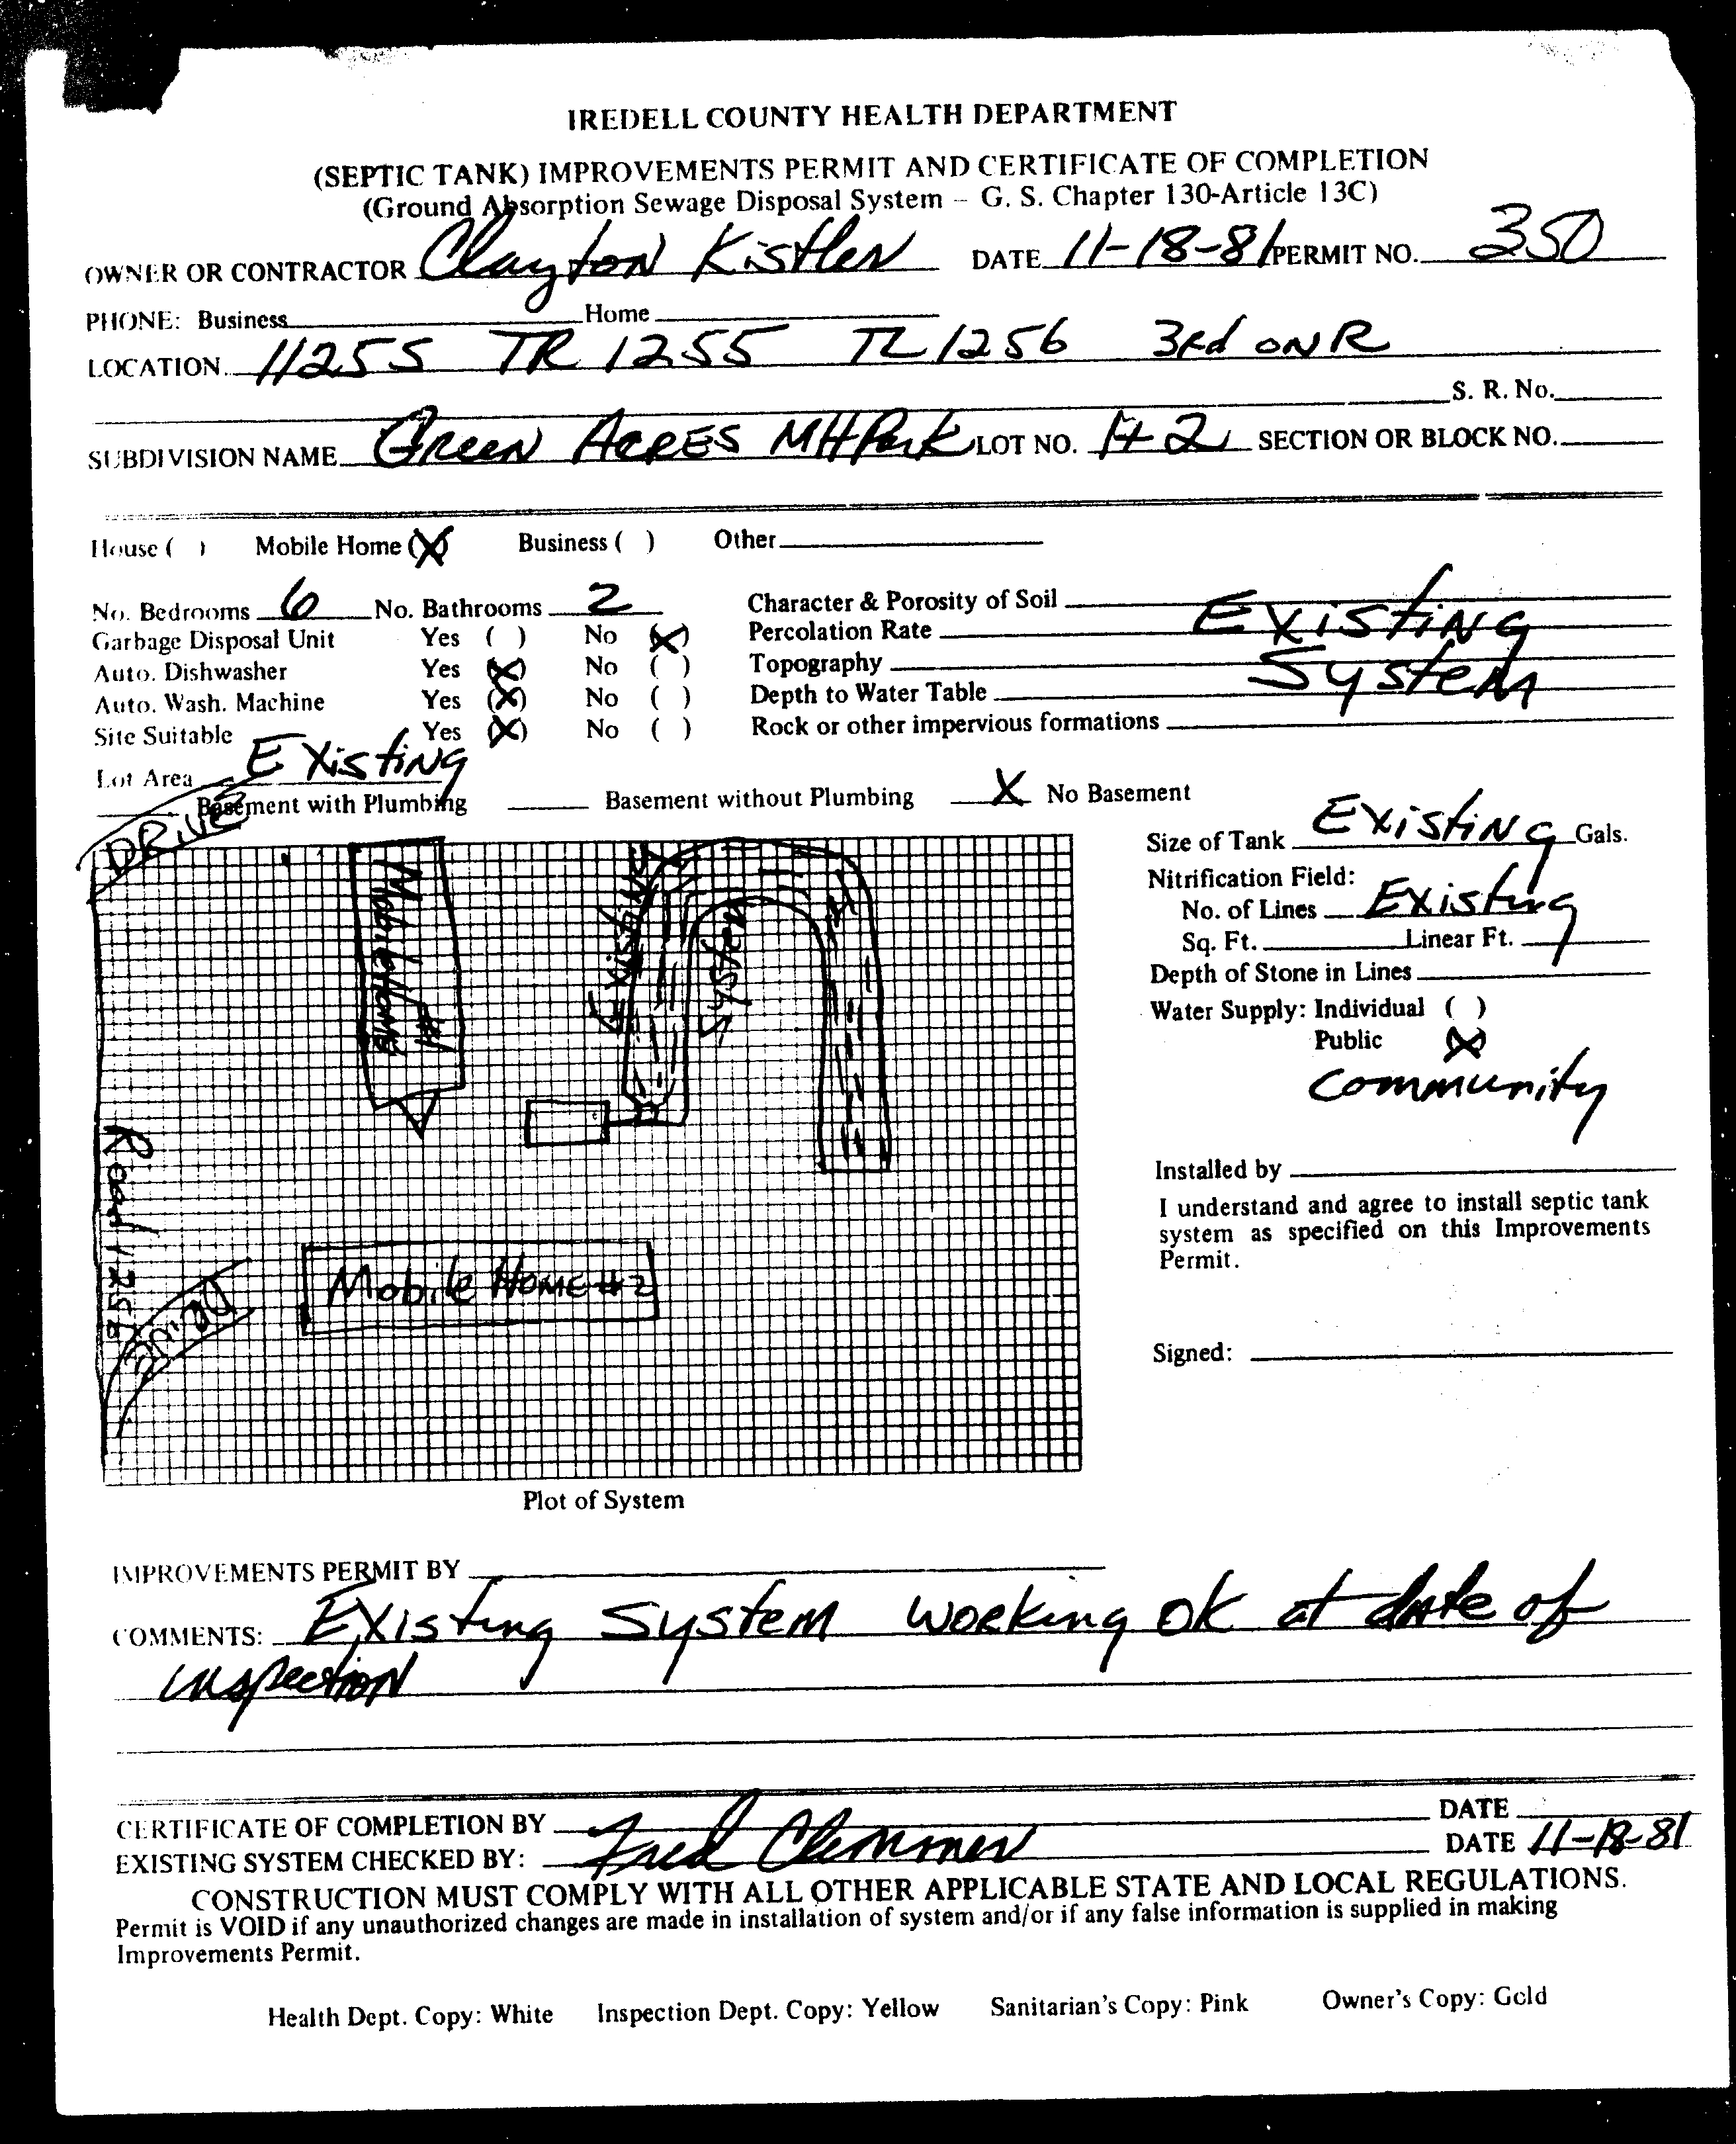 IREDELL COUNTY HEALTH DEPARTMENT
(SEPTIC TANK) IMPROVEMENTS PERMIT AND CERTIFICATE OF COMPLETION
(Ground Absorption Sewage Disposal System – G. S. Chapter 130-Article 13C)
OWNER OR CONTRACTOR Clayton Kistler DATE 11-18-81 PERMIT NO. 350
PHONE: Business Home
LOCATION 1125S TR 1255 TL 1256 3rd ON R
S. R. No.
SUBDIVISION NAME Green Acres MH Park LOT NO. 1+2 SECTION OR BLOCK NO.
House ( ) Mobile Home (X) Business ( ) Other
No. Bedrooms 6 No. Bathrooms 2
Garbage Disposal Unit Yes ( ) No (X)
Auto. Dishwasher Yes (X) No ( )
Auto. Wash. Machine Yes (X) No ( )
Site Suitable Yes (X) No ( )
Lot Area Existing
Character & Porosity of Soil
Percolation Rate Existing
Topography System
Depth to Water Table
Rock or other impervious formations
Basement with Plumbing Basement without Plumbing X No Basement
DRIVE
Mobile Home #1
Existing
System
Road 1256
Drive
Mobile Home #2
Plot of System
Size of Tank Existing Gals.
Nitrification Field:
No. of Lines Existing
Sq. Ft. Linear Ft.
Depth of Stone in Lines
Water Supply: Individual ( )
Public (X)
Community
Installed by
I understand and agree to install septic tank
system as specified on this Improvements
Permit.
Signed:
IMPROVEMENTS PERMIT BY
COMMENTS: Existing System working OK at date of
inspection
CERTIFICATE OF COMPLETION BY DATE
EXISTING SYSTEM CHECKED BY: Fred Clemmer DATE 11-18-81
CONSTRUCTION MUST COMPLY WITH ALL OTHER APPLICABLE STATE AND LOCAL REGULATIONS.
Permit is VOID if any unauthorized changes are made in installation of system and/or if any false information is supplied in making
Improvements Permit.
Health Dept. Copy: White Inspection Dept. Copy: Yellow Sanitarian's Copy: Pink Owner's Copy: Gold